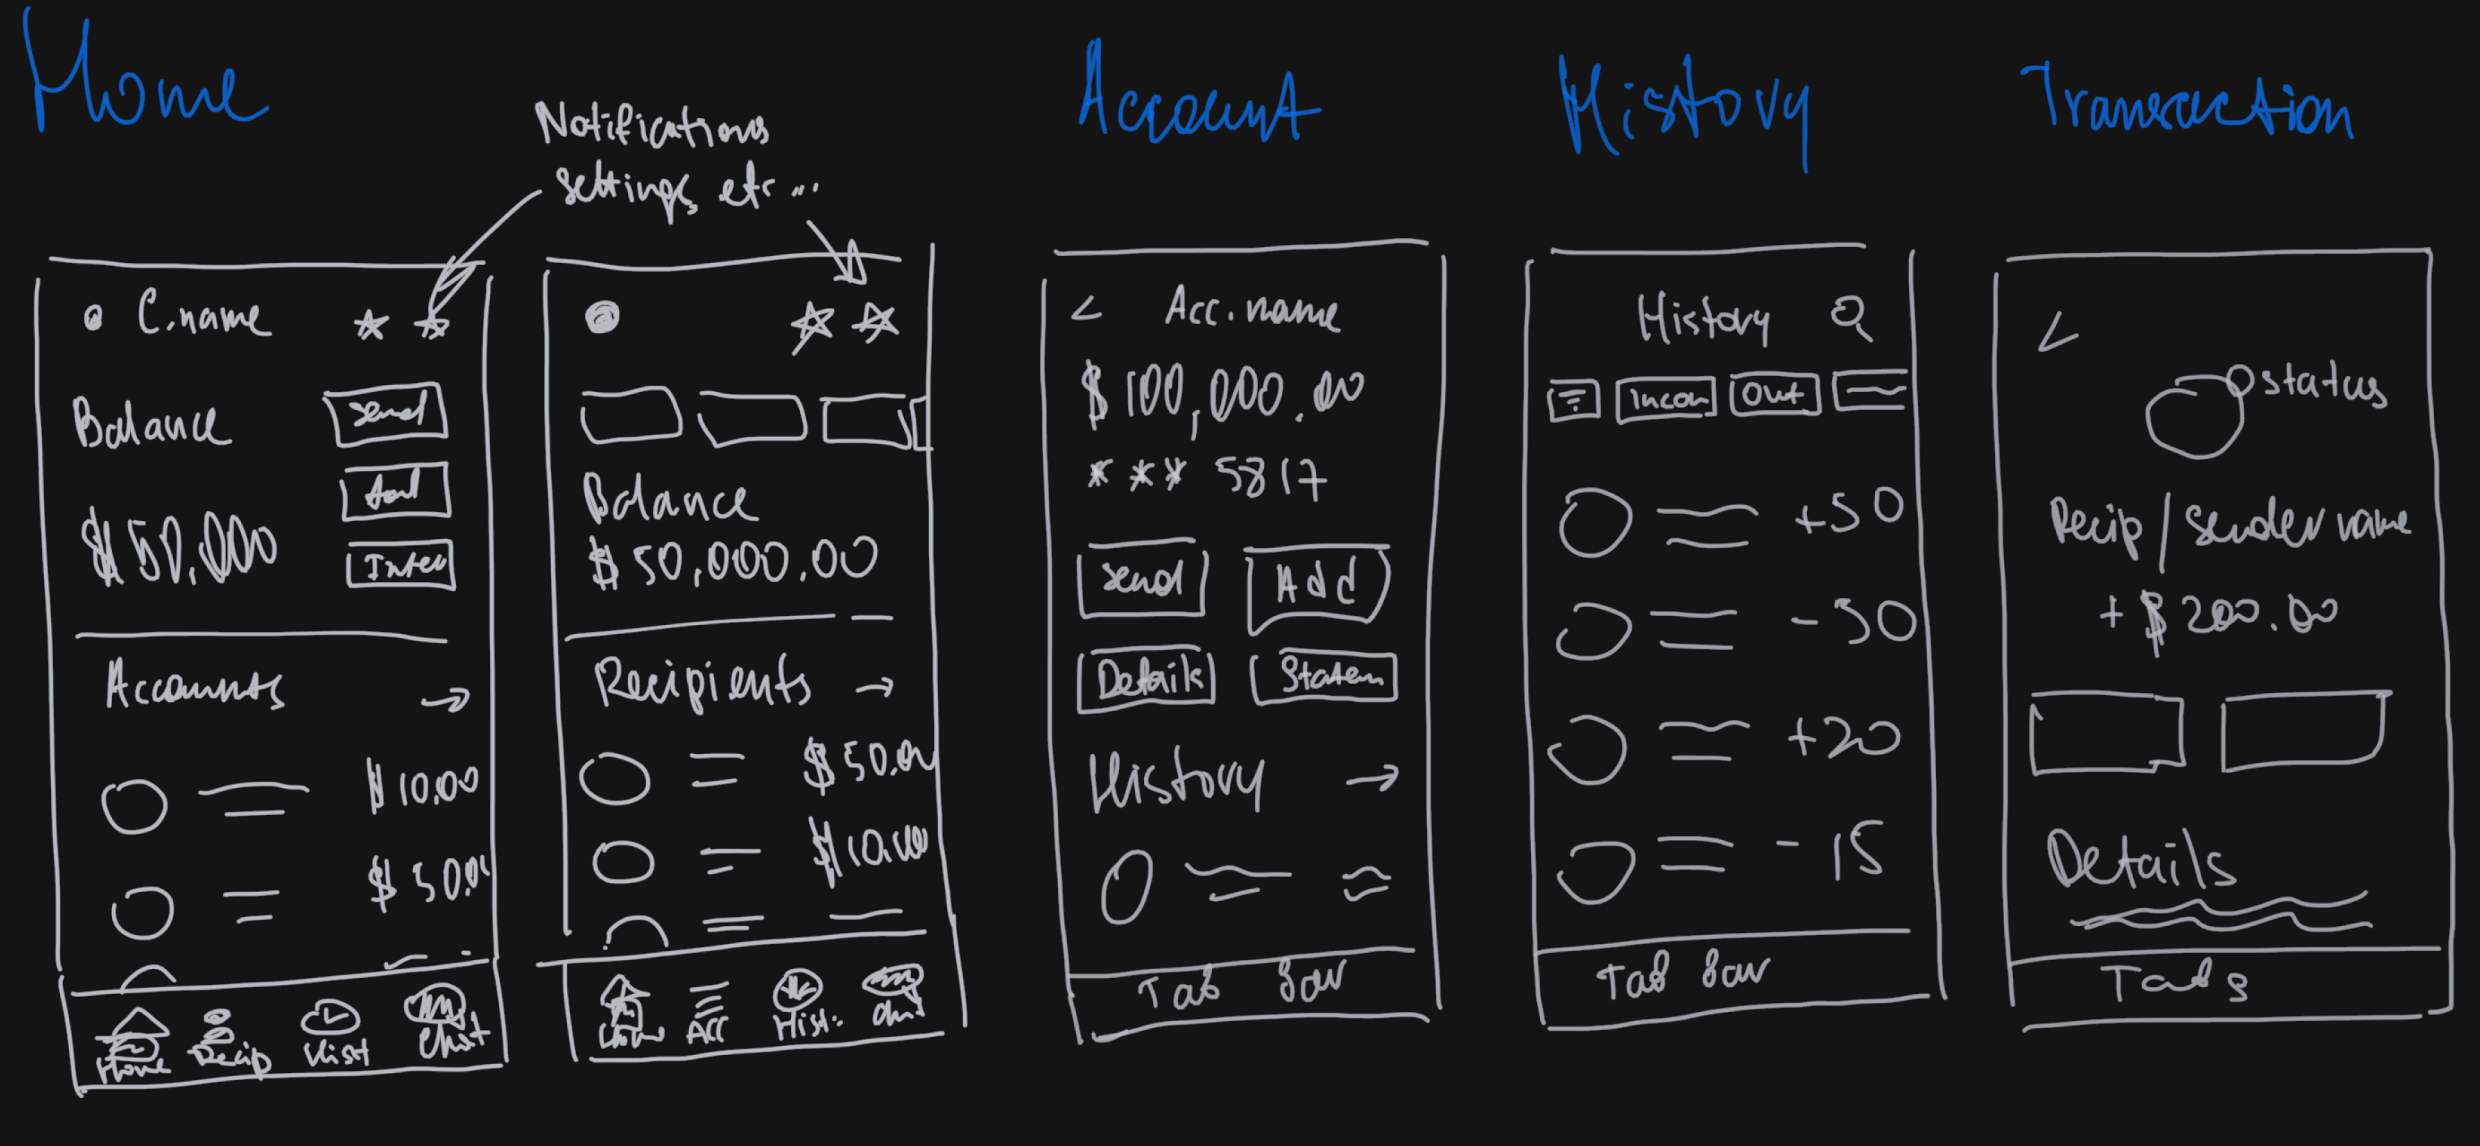 Home
Notifications
settings, etc...
C.name
Balance
send
$50,000
Accounts
$10.00
$50.0
Home
Recip
Hist
Chat
Balance
$50,000.00
Recipients
$50.00
$10.00
Home
Acc
Hist.
Account
< Acc. name
$100,000.00
*** 5817
send
Add
Details
Statem
History
Tab Bar
History
History
Incom
Out
+50
-50
+20
-15
Tab bar
Transaction
<
status
Recip/sender name
+ $200.00
Details
Tabs